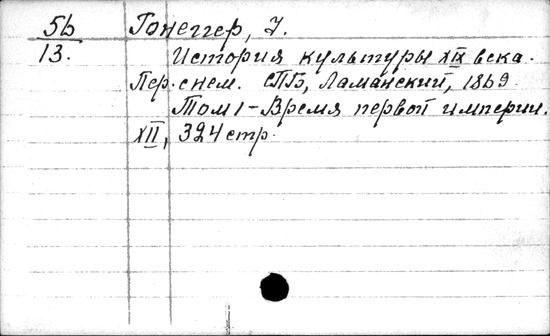 56 Гонеггер, I.
13. История культуры XIX века.
Пер. с нем. СПБ, Ламанский, 1869
Том I - Время первой империи.
XII, 324 стр.